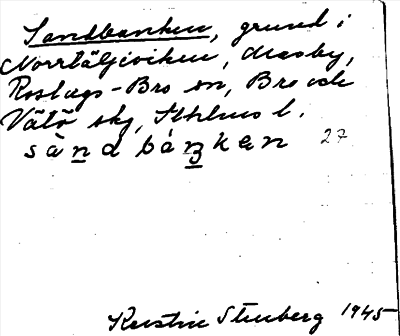 Sandbanken, grund i
Norrtäljeviken, Masby,
Roslags-Bro sn, Bro och
Vätö skg, Sthlms l.
sàn̲d báŋ̲ken 27
Kerstin Stenberg 1945